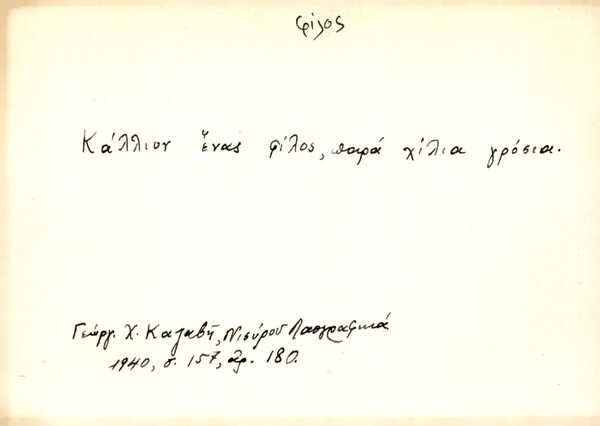 φίλος
Κάλλιον ἕνας φίλος, παρά χίλια γρόσια.
Γεώργ. Χ. Καζαβῆ, Νισύρου Λαογραφικά
1940, σ. 157, ἀρ. 180.